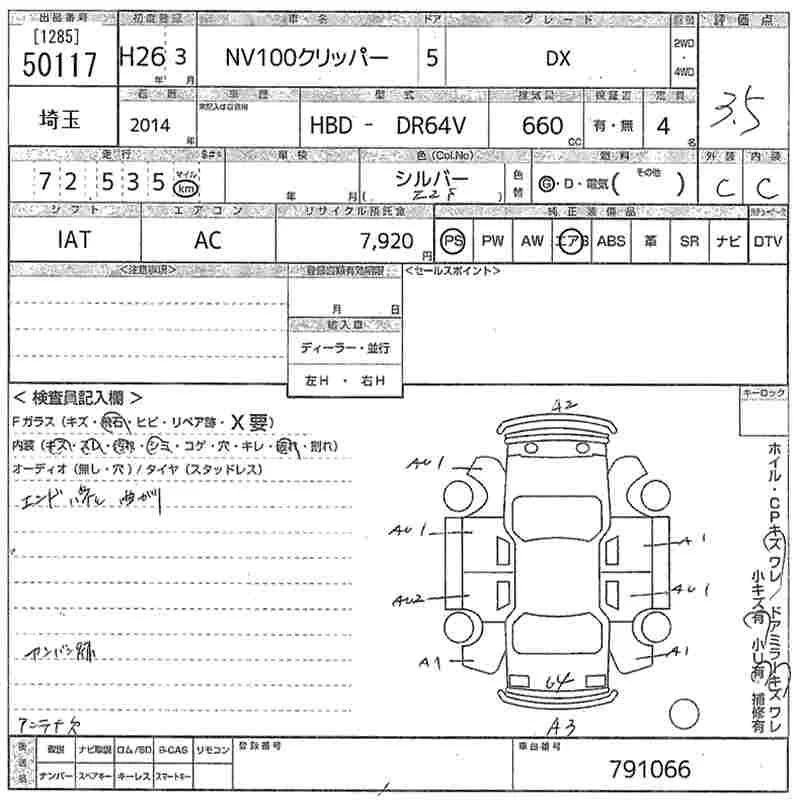 出品番号 初度登録 車名 ドア グレード 型版 評価点
[1285]
50117 H26 3 NV100クリッパー 5 DX 2WD ・ 4WD 3.5
年 月
年暦 車歴 型式 排気量 保証書 定員
埼玉 2014 年 未記入は自家用 HBD - DR64V 660 CC 有・無 4 名
走行 車検 色(Col.No) 燃料 外装 内装
72535 マイル km 年 月 シルバー ( Z2S ) 色替 G・D・電気( その他 ) C C
シフト エアコン リサイクル預託金 純正装備品
IAT AC 7,920 円 PS PW AW エアB ABS 革 SR ナビ DTV
<注意事項> 登録書類有効期限 <セールスポイント>
月 日
輸入車
ディーラー・並行
左H ・ 右H
< 検査員記入欄 > キーロック
Fガラス (キズ・飛石・ヒビ・リペア跡・X要)
内装 (キズ・スレ・汚れ・シミ・コゲ・穴・キレ・割れ)
オーディオ (無し・穴) / タイヤ (スタッドレス)
エンドパネル 曲がり
アンテナ欠
A2
AU1
AU1 A1
AU2 AU1
A1 A1
U4
A3
ホイル・CPキズ ワレ / ドアミラーキズ ワレ
小キズ有 小U有 補修有
後送品 取説 ナビ取説 ロム/SD B-CAS リモコン 登録番号 車台番号
ナンバー スペアキー キーレス スマートキー 791066